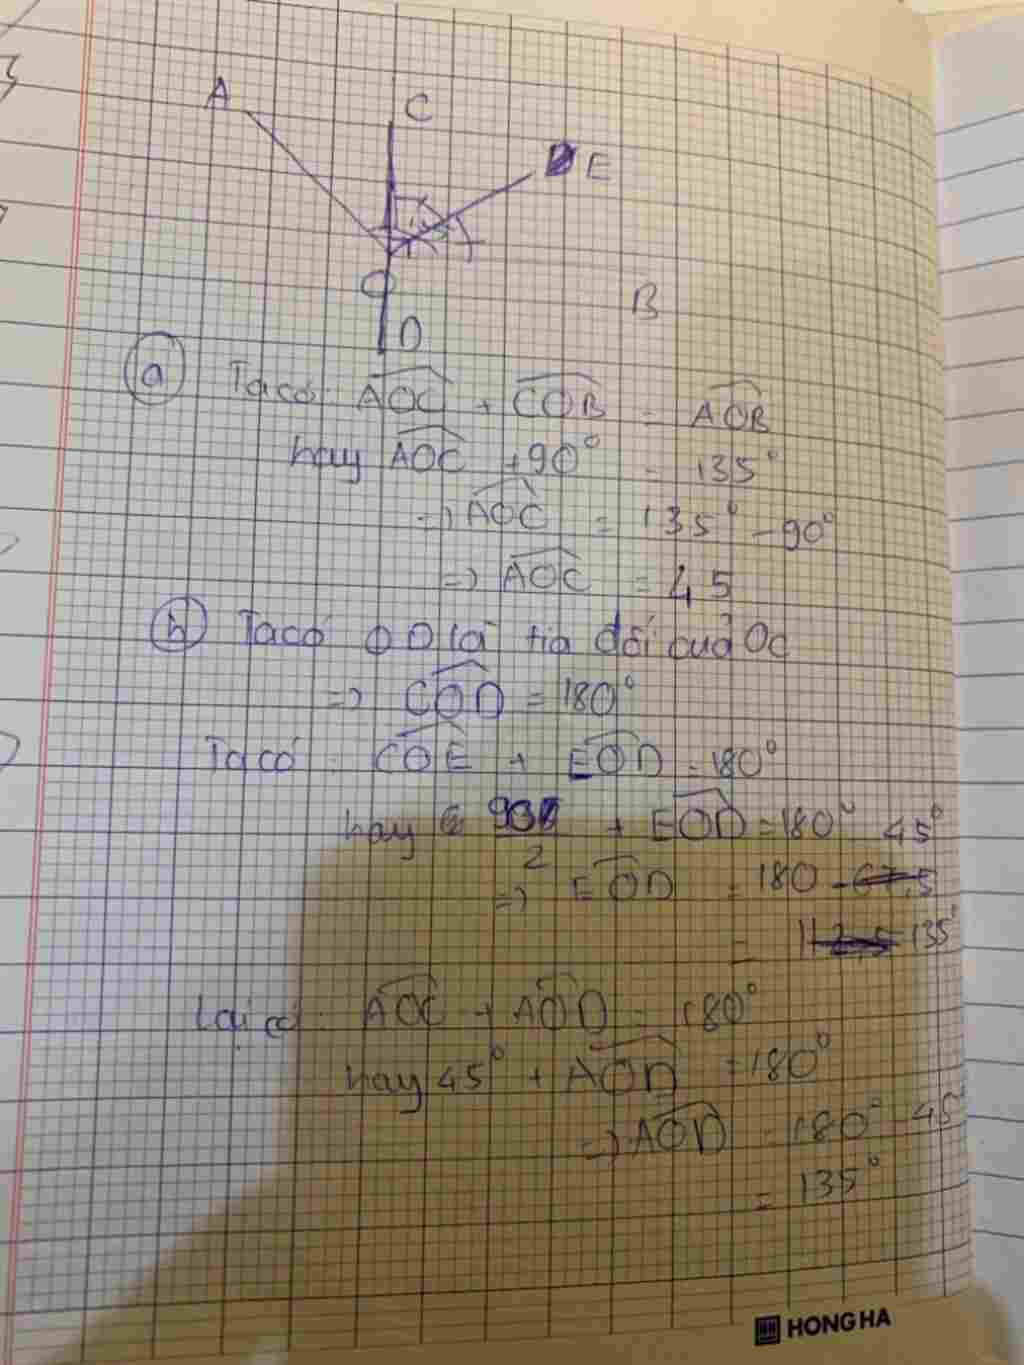 A
C
E
O
B
D
a Ta có: AOC + COB = AOB
hay AOC + 90° = 135°
=> AOC = 135° - 90°
=> AOC = 45
b Ta có OD là tia đối của Oc
=> COD = 180°
Ta có: COE + EOD = 180°
hay 90 / 2 + EOD = 180°
=> EOD = 180 - 45°
= 135°
Lại có: AOC + AOD = 180°
hay 45° + AOD = 180°
=> AOD = 180° - 45°
= 135°
HONG HA